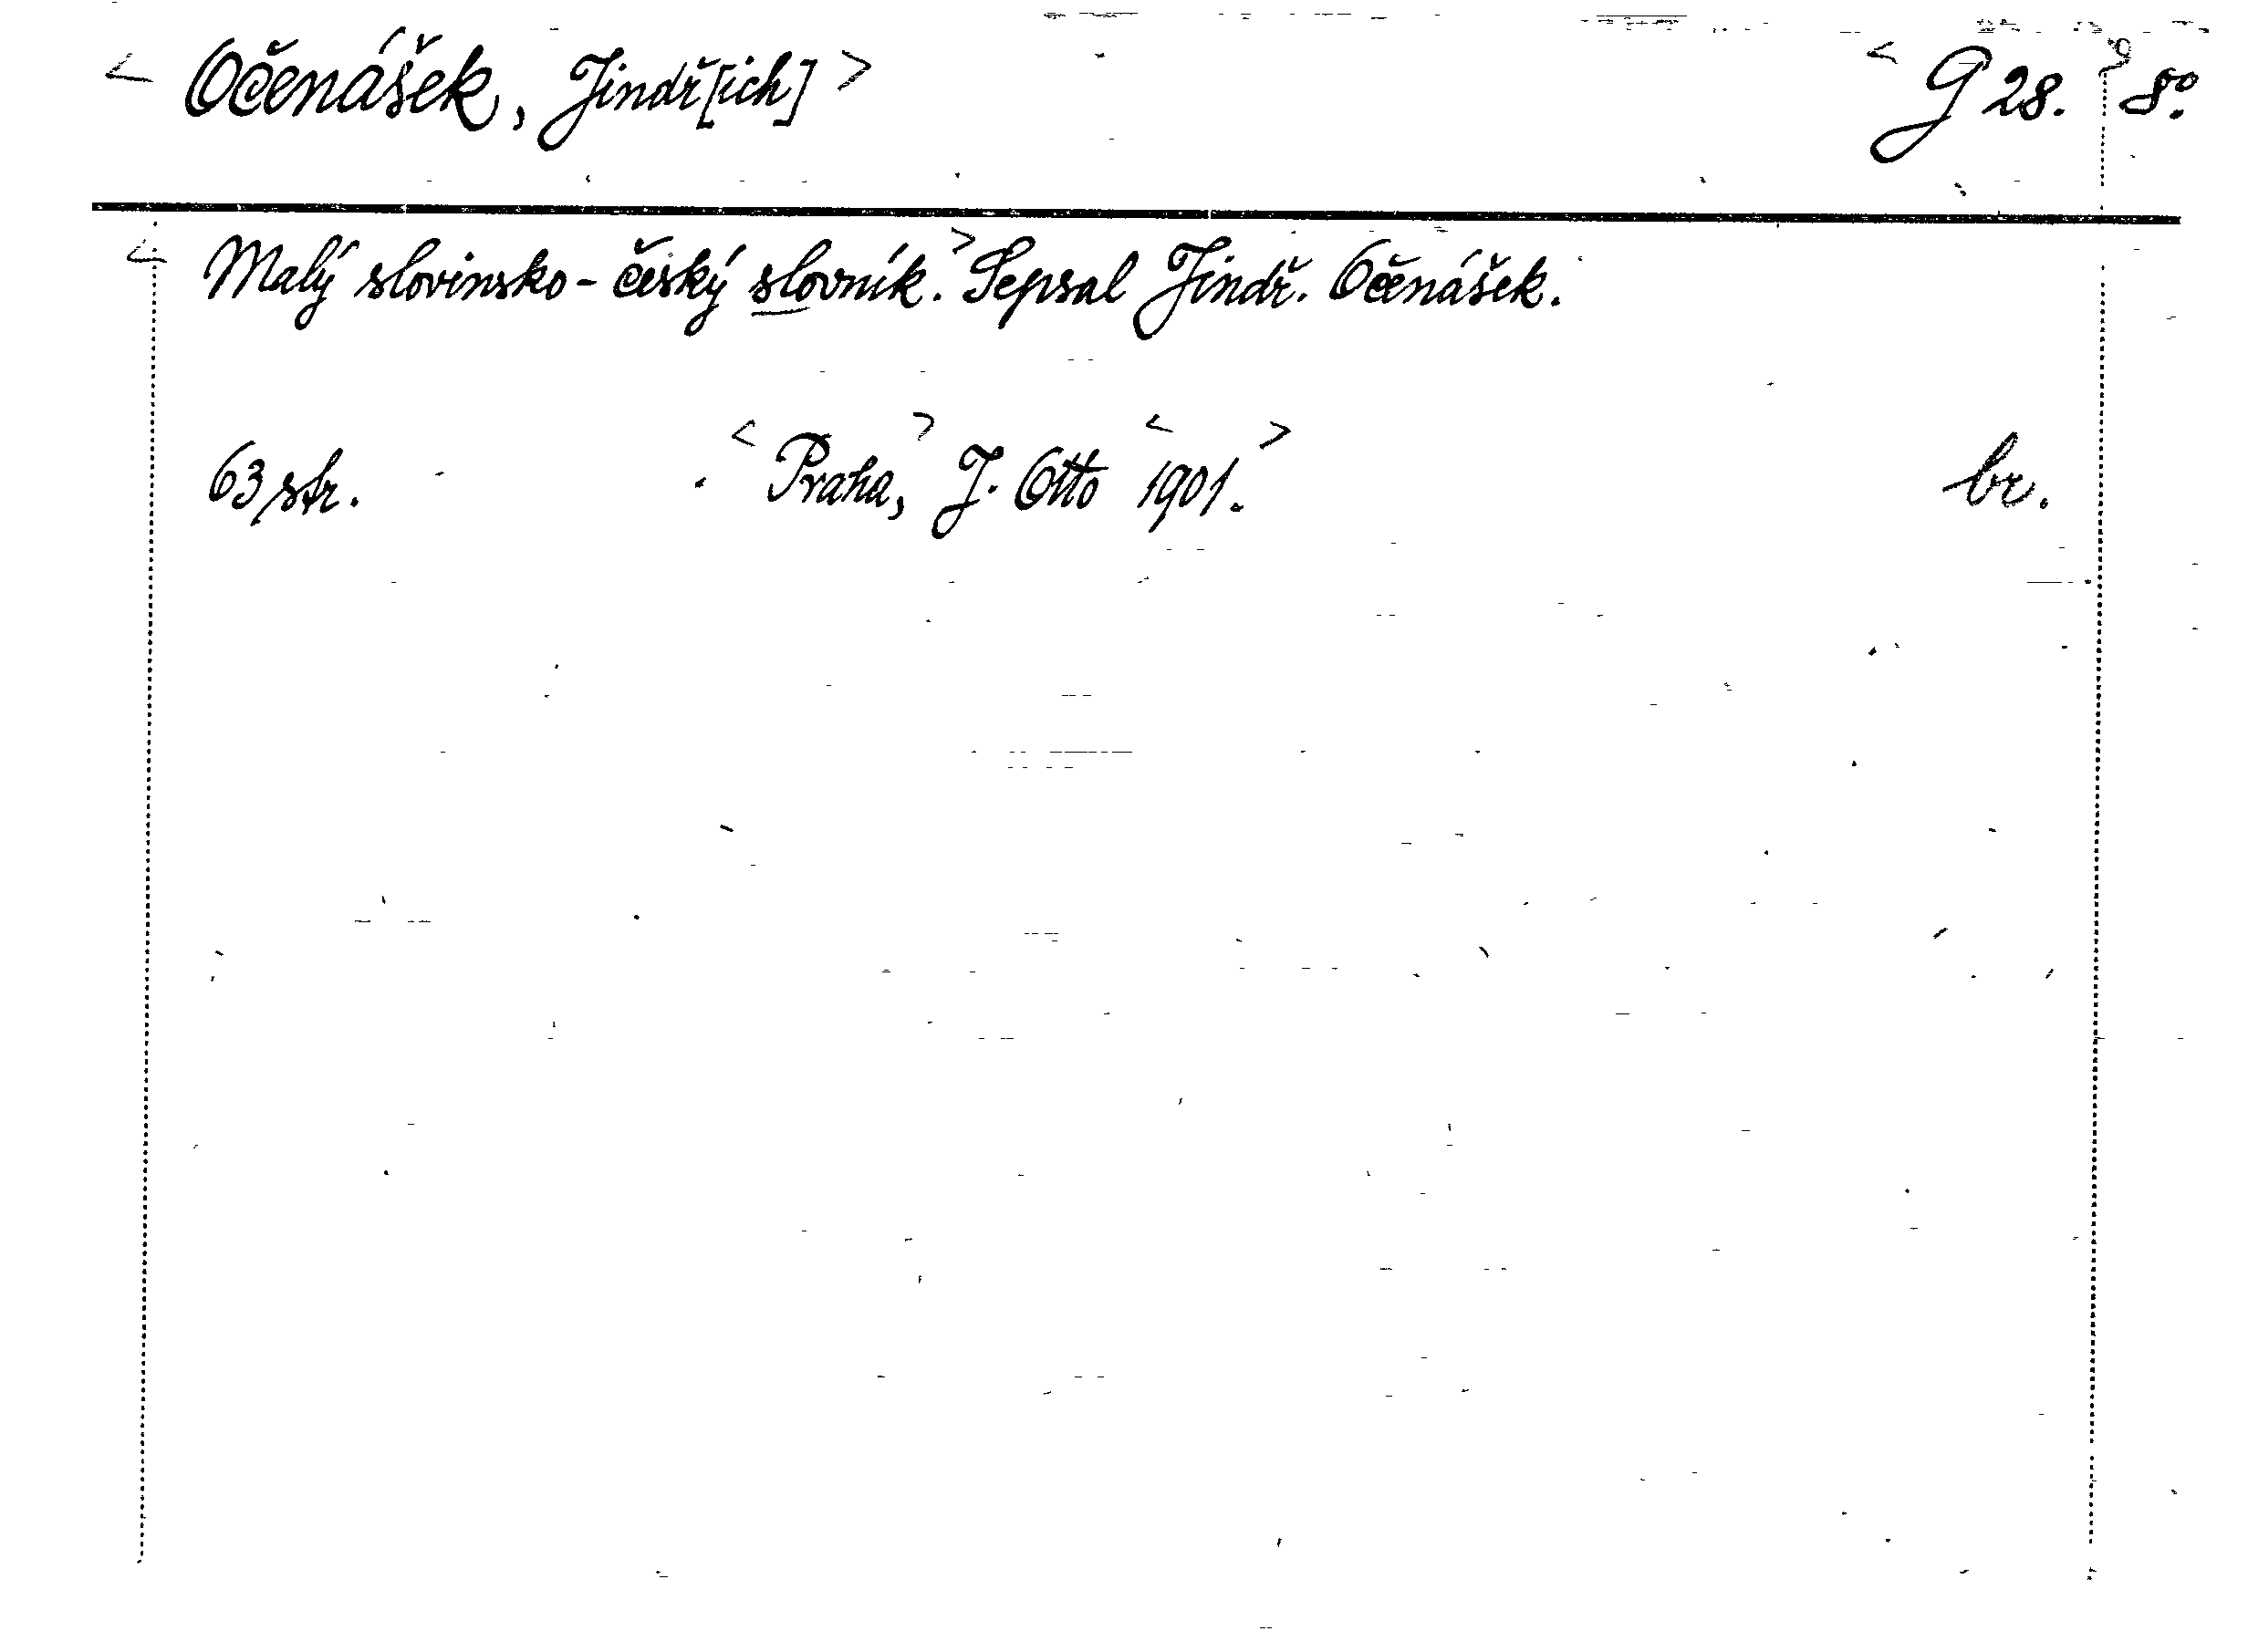 < Očenášek, Jindř[ich] > < G 28. > 8°.
< Malý slovinsko-český slovník. > Sepsal Jindř. Očenášek.
63 str. < Praha, > J. Otto < 1901. > br.